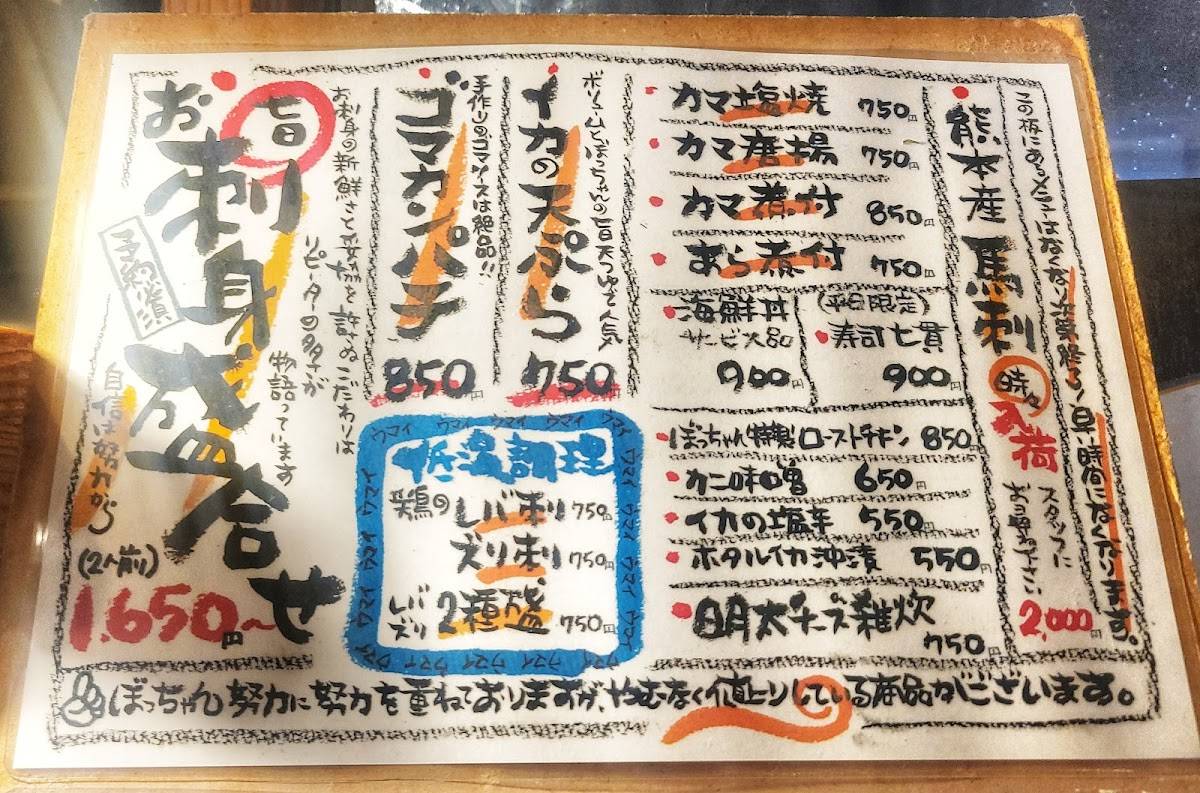 この板にあるメニューはなくなり次第終了!早い時間になくなります。
熊本産 馬刺
時々
入荷
スタッフに
お尋ね下さい
2,000円
カマ塩焼 750円
カマ唐揚 750円
カマ煮付 850円
あら煮付 750円
海鮮丼
サービス品
900円
(平日限定)
寿司七貫
900円
ぼっちゃん特製 ローストチキン 850円
カニ味噌 650円
イカの塩辛 550円
ホタルイカ沖漬 550円
明太チーズ雑炊
750円
ボリュームとぼっちゃんの旨天つゆで人気
イカの天ぷら
750円
ゴマカンパチ
手作りのゴマソースは絶品!!
850円
ウマイ ウマイ ウマイ ウマイ ウマイ
低温調理
鶏の レバ刺 750円
ズリ刺 750円
レバ
ズリ
2種盛 750円
旨
お刺身盛合せ
お刺身の新鮮さと妥協を許さぬこだわりは
リピーターの多さが
物語っています
自信は努力から
(2人前)
1,650円〜
ぼっちゃん努力に努力を重ねておりますが、やむなく値上りしている商品がございます。